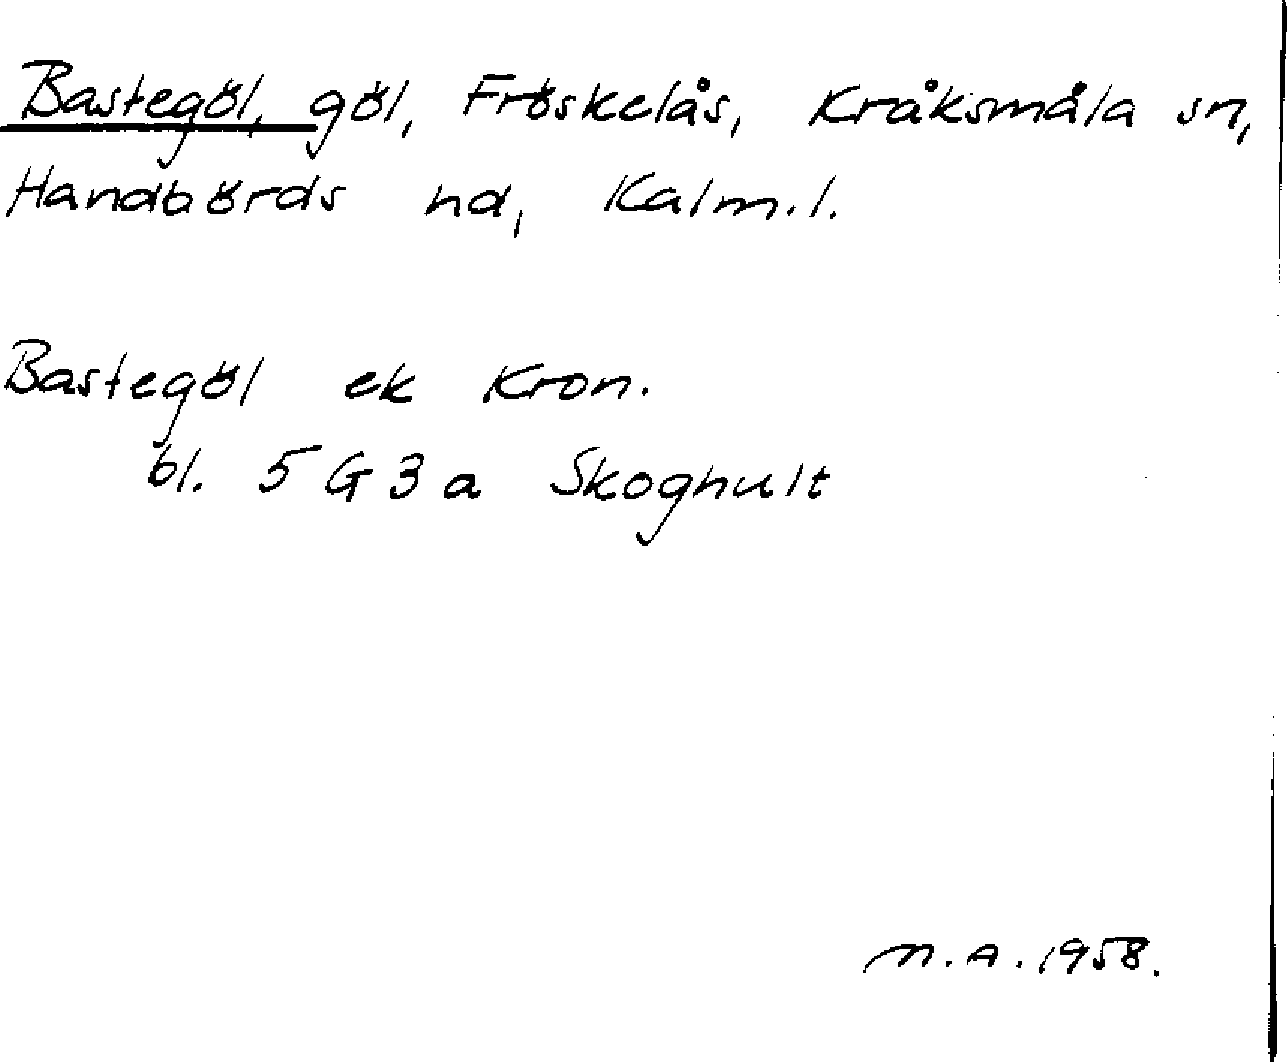 Bastegöl, göl, Fröskelås, Kråksmåla sn,
Handbörds hd, Kalm.l.
Bastegöl ek Kron.
bl. 5 G 3 a Skoghult
M.A. 1958.